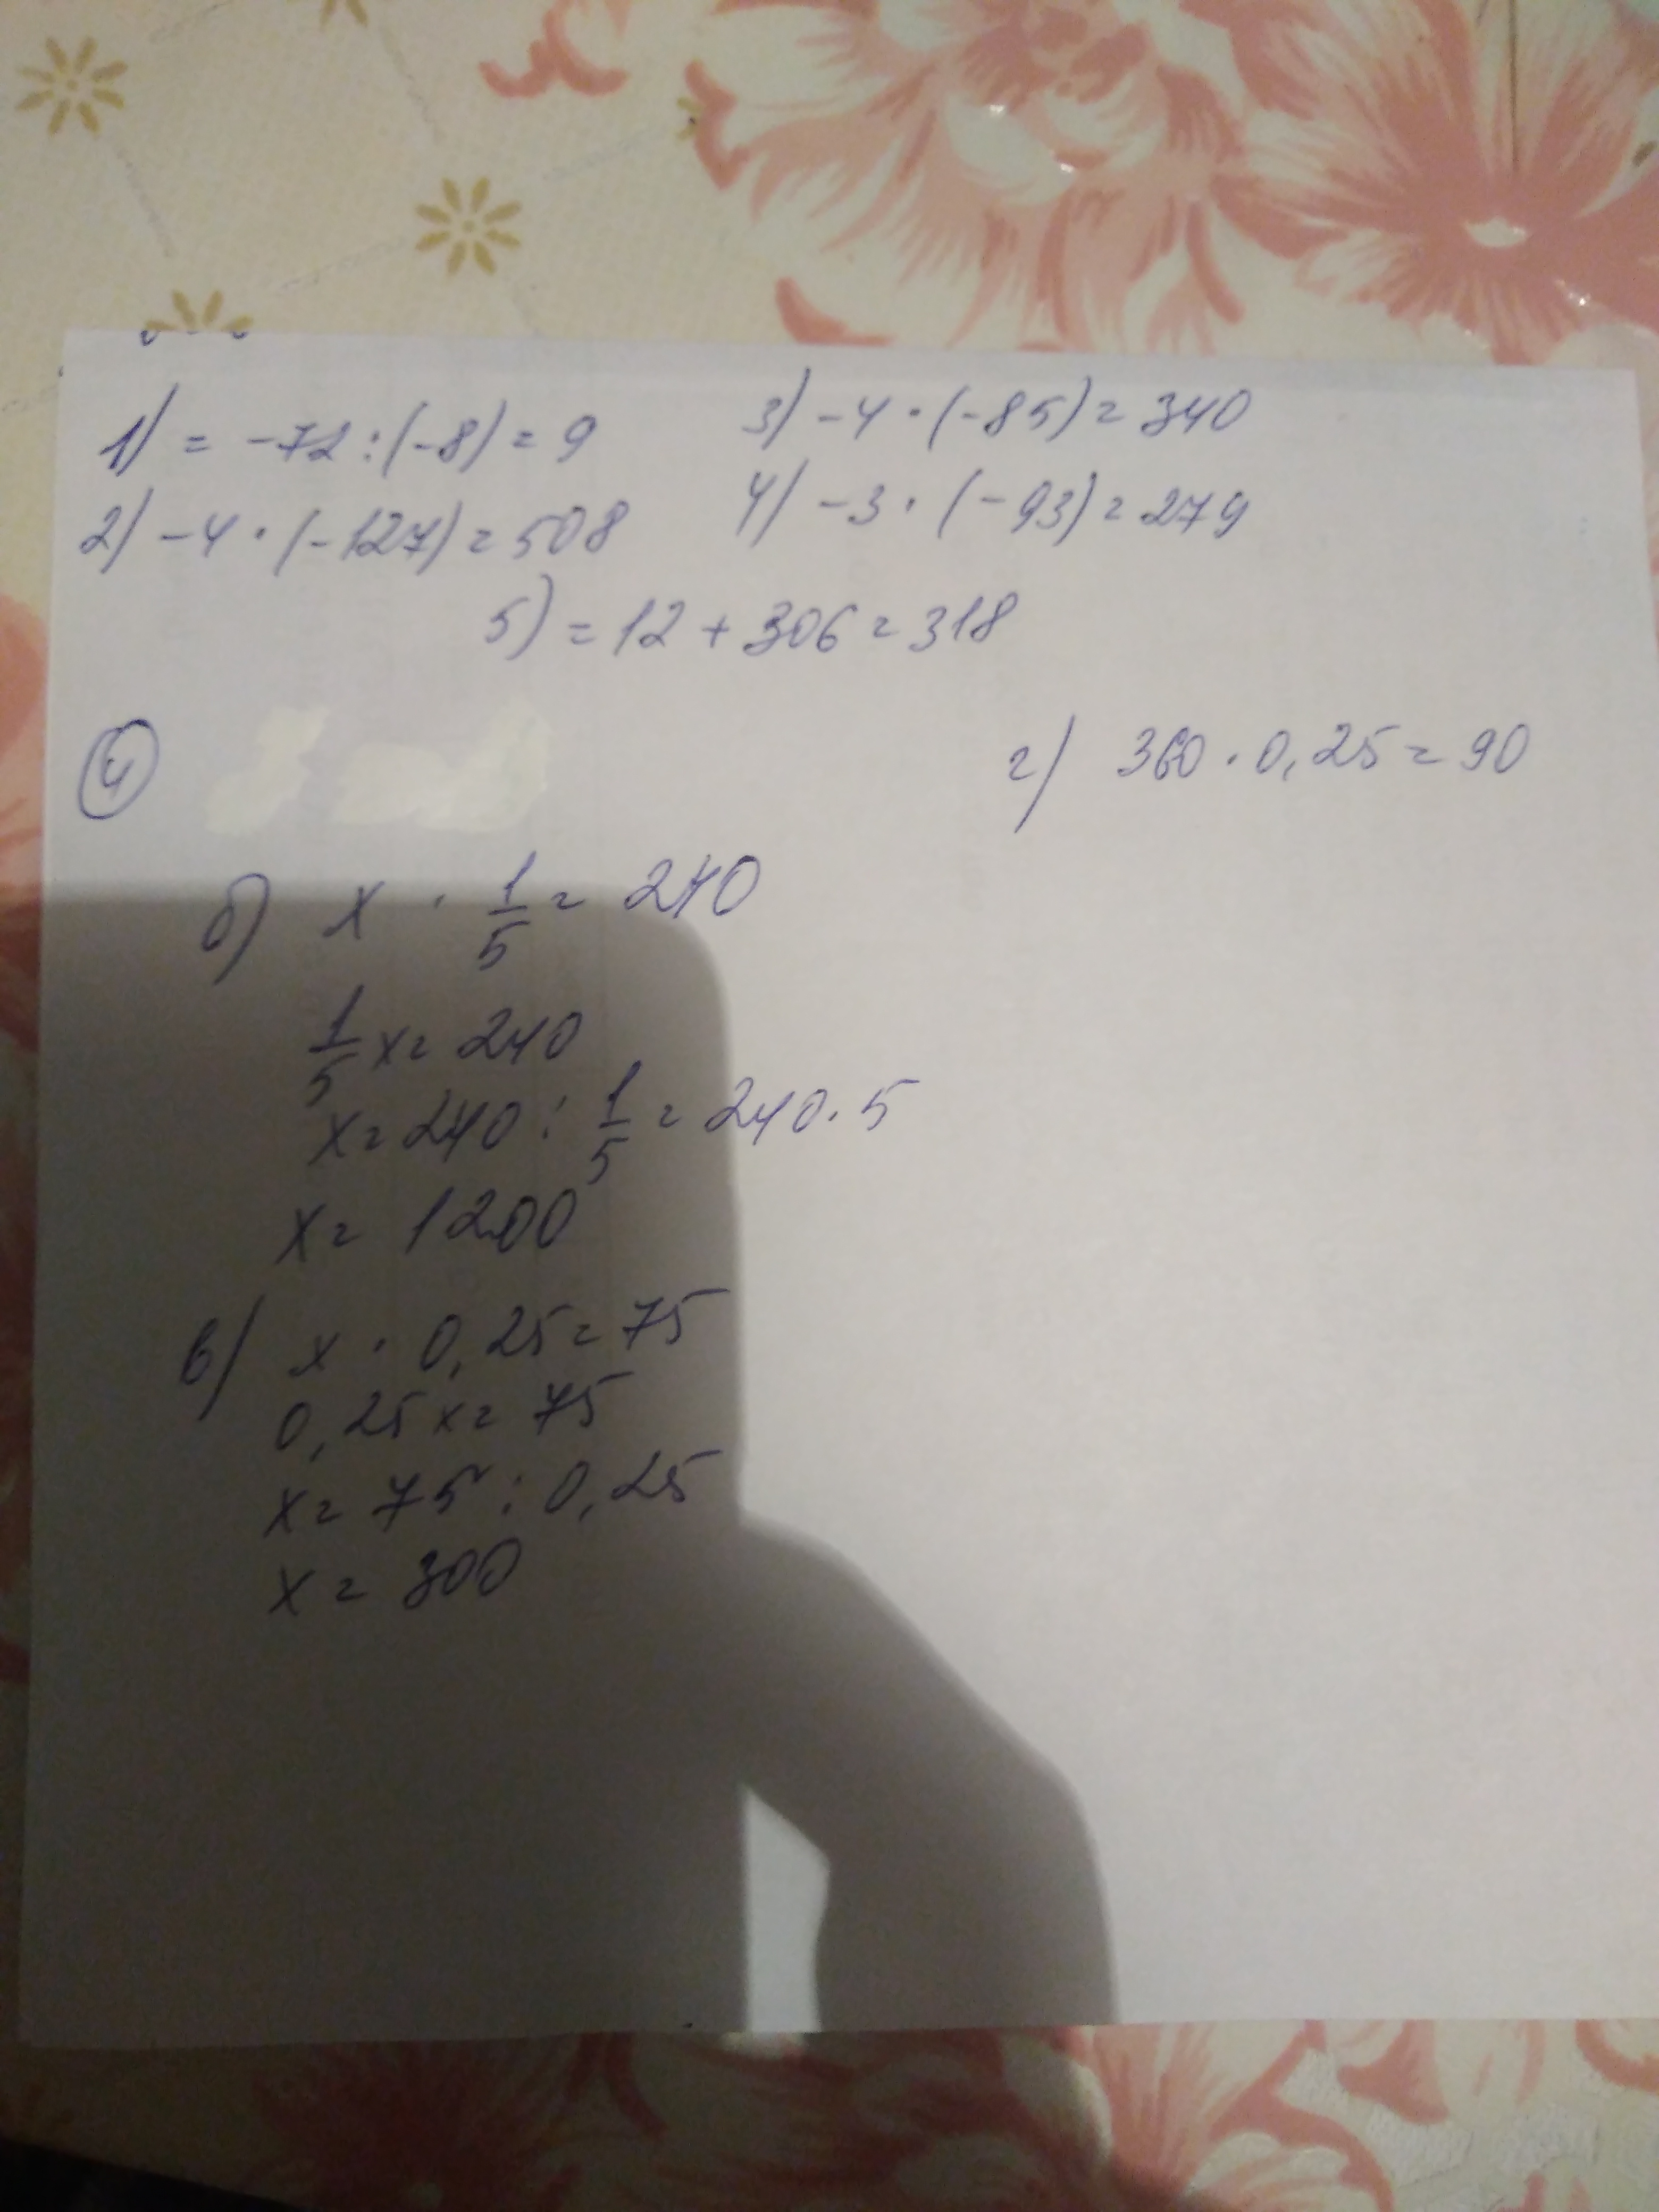 1) = -72 : (-8) = 9
2) -4 · (-127) = 508
3) -4 · (-85) = 340
4) -3 · (-93) = 279
5) = 12 + 306 = 318
4
г) 360 · 0,25 = 90
б) x · 1/5 = 240
1/5 x = 240
x = 240 : 1/5 = 240 · 5
x = 1200
в) x · 0,25 = 75
0,25 x = 75
x = 75 : 0,25
x = 300